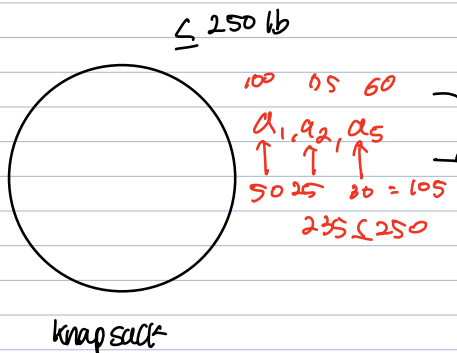 ≤ 250 lb
100 75 60
a₁, a₂, a₅
50 25 30 = 105
235 ≤ 250
knapsack